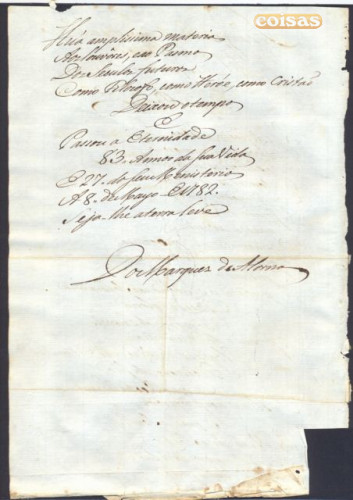 coisas
Huá amplissima materia
Aos louvores, e ao Pasmo
Do seculo futuro
Como Filosofo, como Heróe, como Cristaõ
Deixou o tempo
E
Passou a Eternidade
83. Annos da sua Vida
E 27. do seu Ministerio
A 8. de Mayo de 1782.
Seja-lhe a terra leve
Do Marquez de Alorna